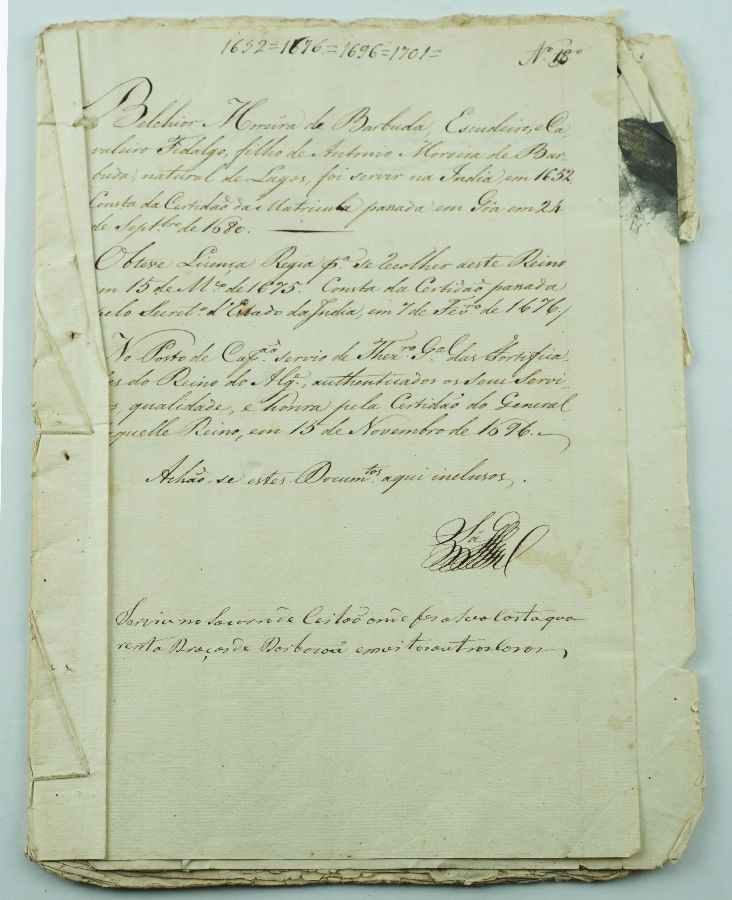 1652=1676=1696=1701=
Nº 18º
Belchior Moreira de Barbuda, Escudeiro, e Ca-
valeiro Fidalgo, filho de Antonio Moreira de Bar-
buda, natural de Lagos, foi servir na India em 1652.
Consta da Certidão da Matricula passada em Gôa em 24
de Septbro de 1680.
Obteve Licença Regia pª se recolher aeste Reino
m 15 de Mço de 1675. Consta da Certidão passada
pelo Secretº d'Estado da India, em 7 de Fevrº de 1676/
No Posto de Capão servio de Thezro Gal das Fortifica-
es do Reino do Algº, authenticados os seus Servi-
s, qualidade, e honra pela Certidão do General
aquelle Reino, em 15 de Novembro de 1696.
Achão-se estes Documtos aqui inclusos.
Serviu no Socorro de Ceilão onde fes a sua Custa qua
renta Braças de